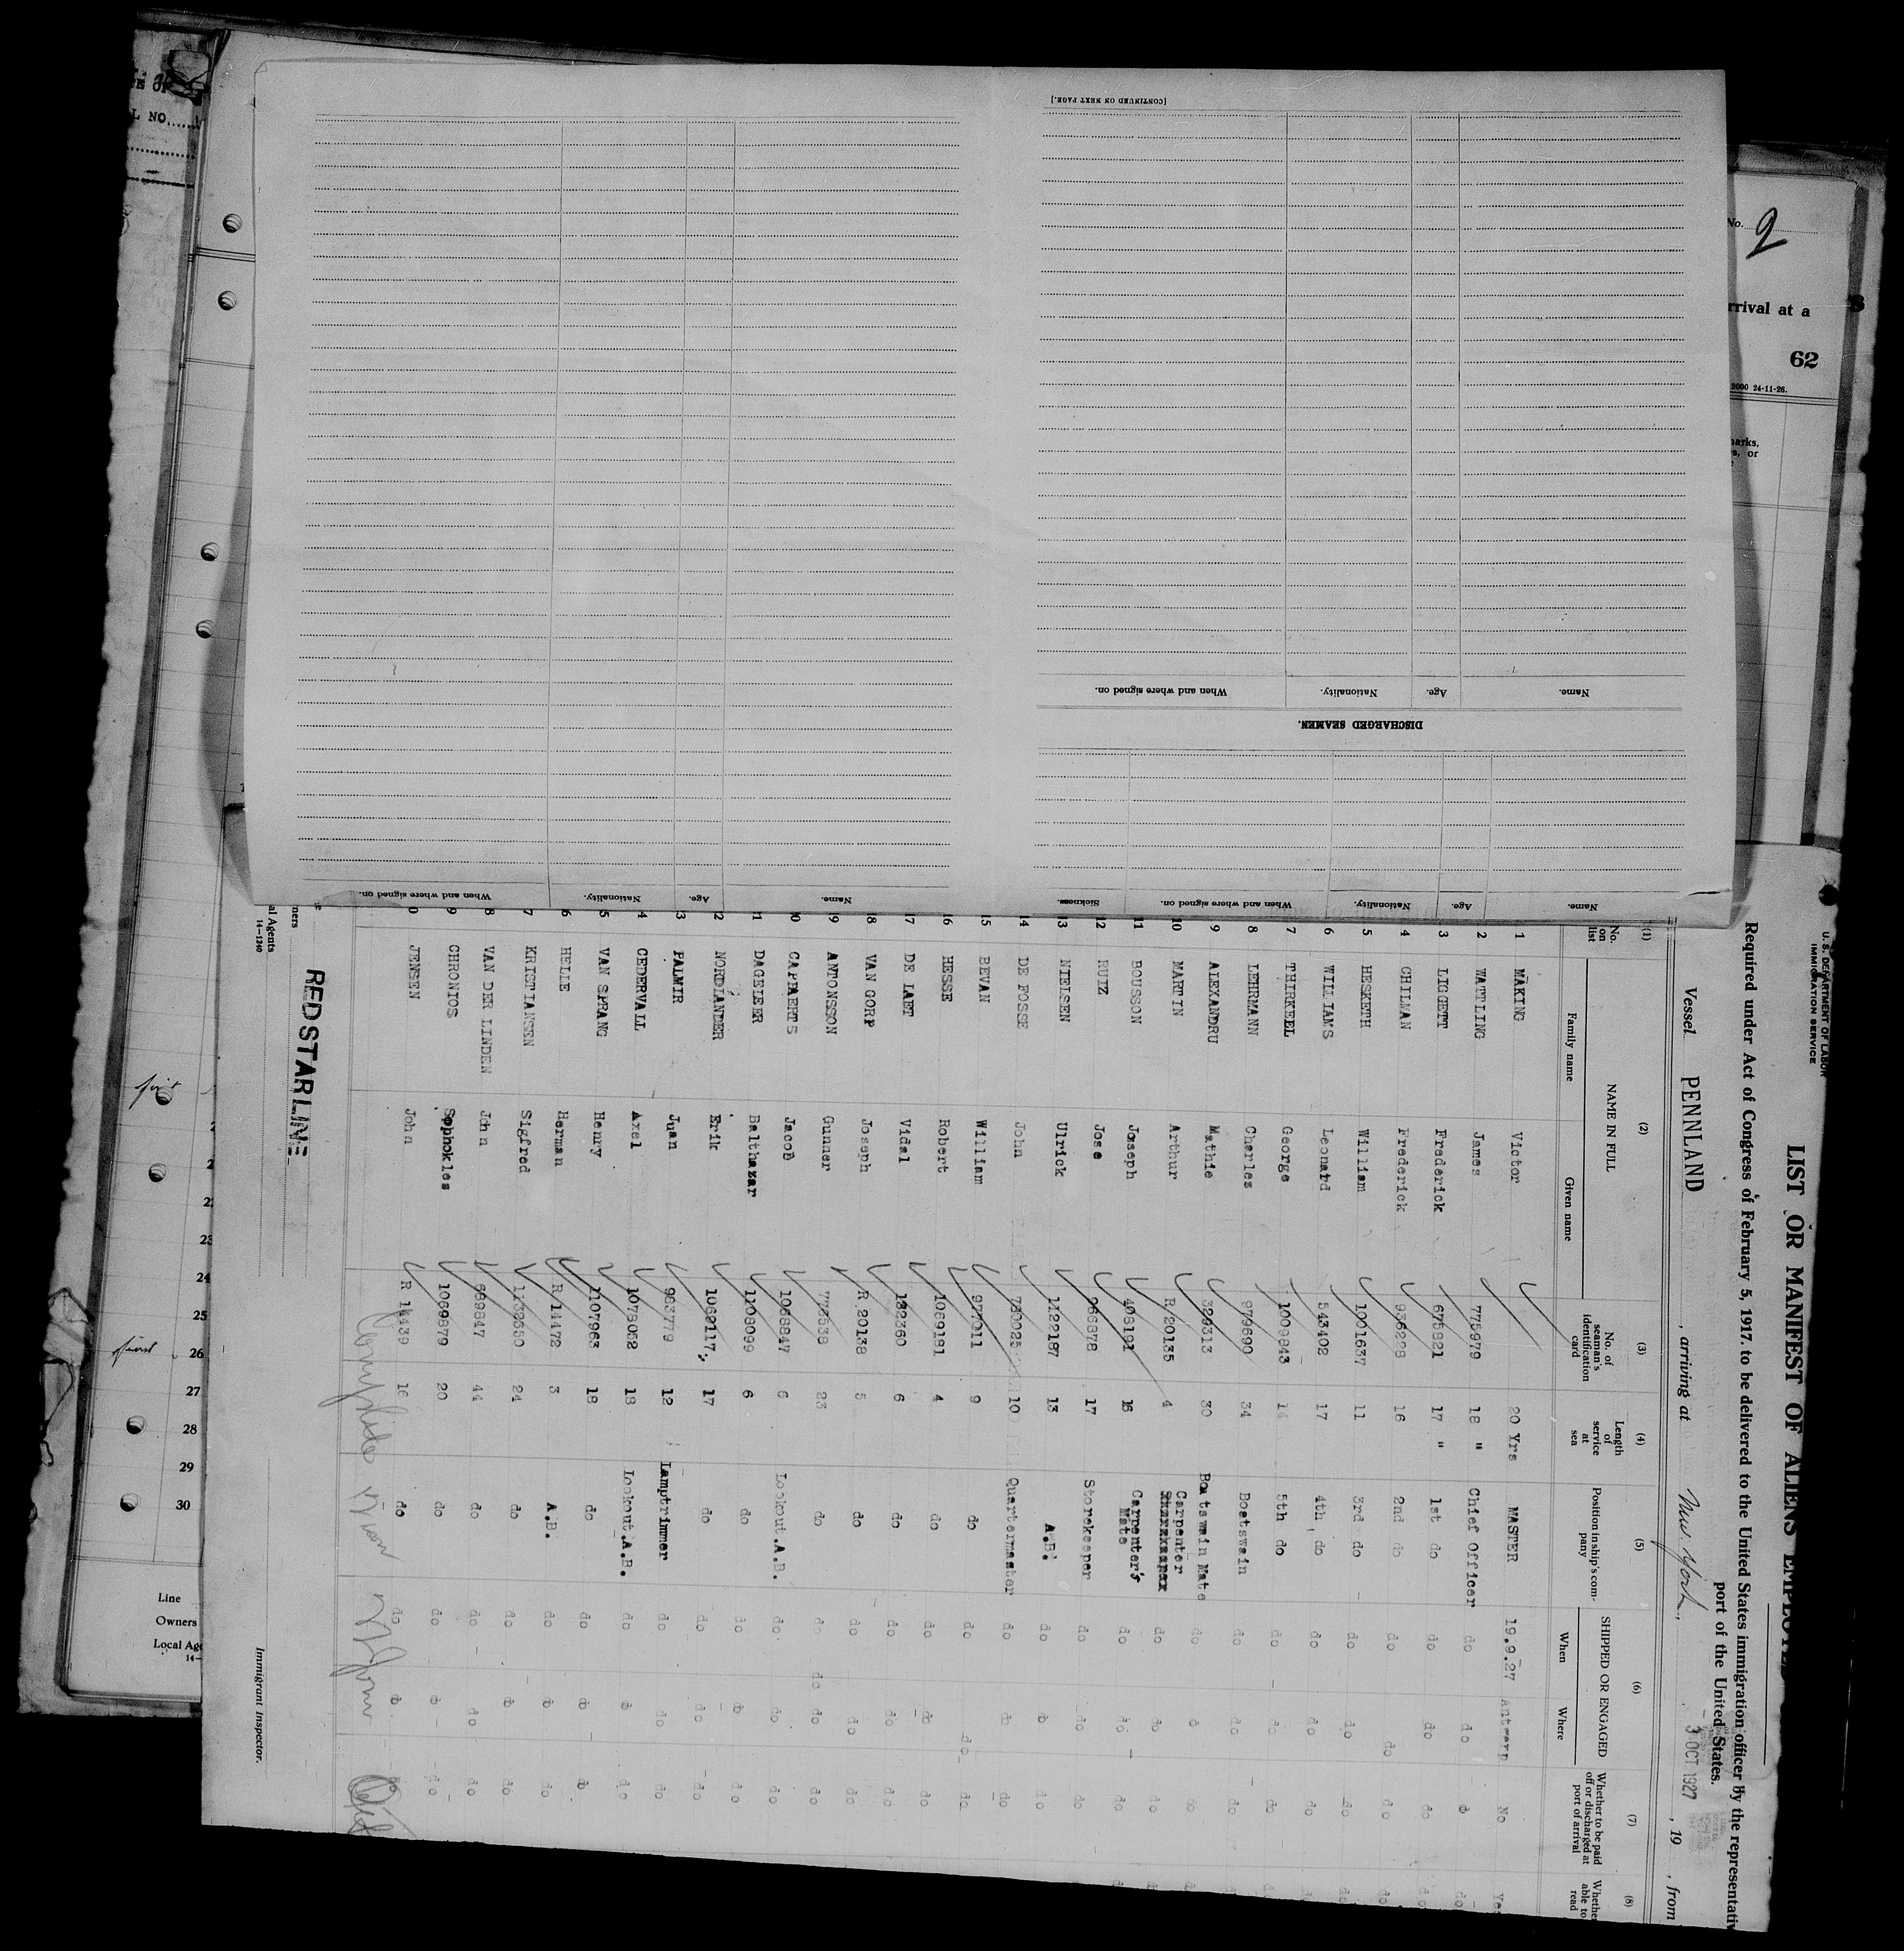 U. S. DEPARTMENT OF LABOR
IMMIGRATION SERVICE
LIST OR MANIFEST OF ALIENS EMPLOYE
Required under Act of Congress of February 5, 1917, to be delivered to the United States immigration officer by the representativ
port of the United States.
Vessel PENNLAND , arriving at New York , 3 OCT 1927 , 19 , from
(1) (2) (3) (4) (5) (6) (7) (8)
No. on list
NAME IN FULL
Family name Given name
No. of seaman's identification card
Length of service at sea
Position in ship's company
SHIPPED OR ENGAGED
When Where
Whether to be paid off or discharged at port of arrival
Whethe able to read
1 MAKING Victor 20 Yrs MASTER 19.9.27 Antwerp No Yes
2 WATTLING James 775979 18 " Chief Officer do do do do
3 LIGGETT Frederick 675821 17 " 1st do do do do do
4 CHILMAN Frederick 936228 16 2nd do do do do do
5 HESKETH William 1001637 11 3rd do do do do do
6 WILLIAMS Leonard 543402 17 4th do do do do
7 THIRKEEL George 1009843 14 5th do do do do
8 LEHRMANN Charles 979690 34 Boatswain do do do
9 ALEXANDRU Mathie 329313 30 Boatswain Mate do do do
10 MARTIN Arthur R 20135 4 Carpenter do do do
11 BOUSSON Joseph 408191 16 Carpenter's Mate do do do
12 RUIZ Jose 966878 17 Storekeeper do do do
13 NIELSEN Ulrick 1122187 13 A.B. do do do
14 DE FOSSE John 730025 10 Quartermaster do do do
15 BEVAN William 977011 9 do do do do
16 HESSE Robert 1069181 4 do do do do
17 DE LAET Vidal 132360 6 do do do do
18 VAN GORP Joseph R 20138 5 do do do do
19 ANTONSSON Gunner 773538 23 do do do do do
20 CAPPAETS Jacob 1068847 6 Lookout.A.B. do do do
21 DAGELEER Balthazar 1108099 6 do do do do
22 NORDLANDER Erik 1062117 17 do do do do
23 PALMIR Juan 983779 12 Lamptrimmer do do do
24 CEDERVALL Axel 1078052 18 Lookout.A.B. do do do
25 VAN SPRANG Henry 1107963 18 do do do do
26 HELLE Herman R 14472 3 A.B. do do do
27 KRISTIANSEN Sigfred 1132550 24 do do do do
28 VAN DER LINDEN John 699847 44 do do do do
29 CHRONIOS Sophokles 1069879 20 do do do do
30 JENSEN John R 14439 16 do do do do
RED STAR LINE
al Agents
14—1240
Immigrant Inspector.
[CONTINUED ON NEXT PAGE.]
DISCHARGED SEAMEN.
Name. Age. Nationality. When and where signed on.
Name. Age. Nationality. When and where signed on. Sickness.
Name. Age. Nationality. When and where signed on.
No. 2
rrival at a
62
2000 24-11-26.
arks,
s, or
L NO.
24
25
26
27
28
29
30
Line
Owners
Local Age
14—